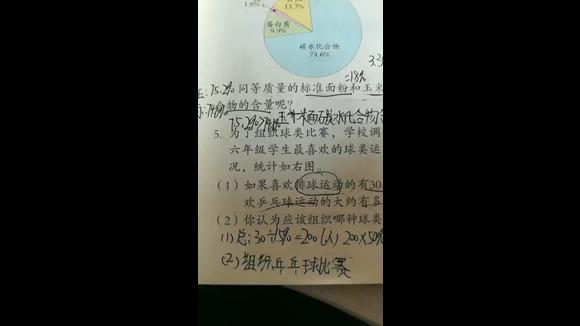 1.8%
13.7%
蛋白质
9.9%
碳水化合物
74.6%
75.2%同等质量的标准面粉和玉米
合物的含量呢?
5. 为了组织球类比赛,学校调
六年级学生最喜欢的球类运
况,统计如右图。
(1)如果喜欢排球运动的有30
欢乒乓球运动的大约有多
(2)你认为应该组织哪种球类
(1)总:30÷15%=200(人) 200×50%
(2)组织乒乓球比赛